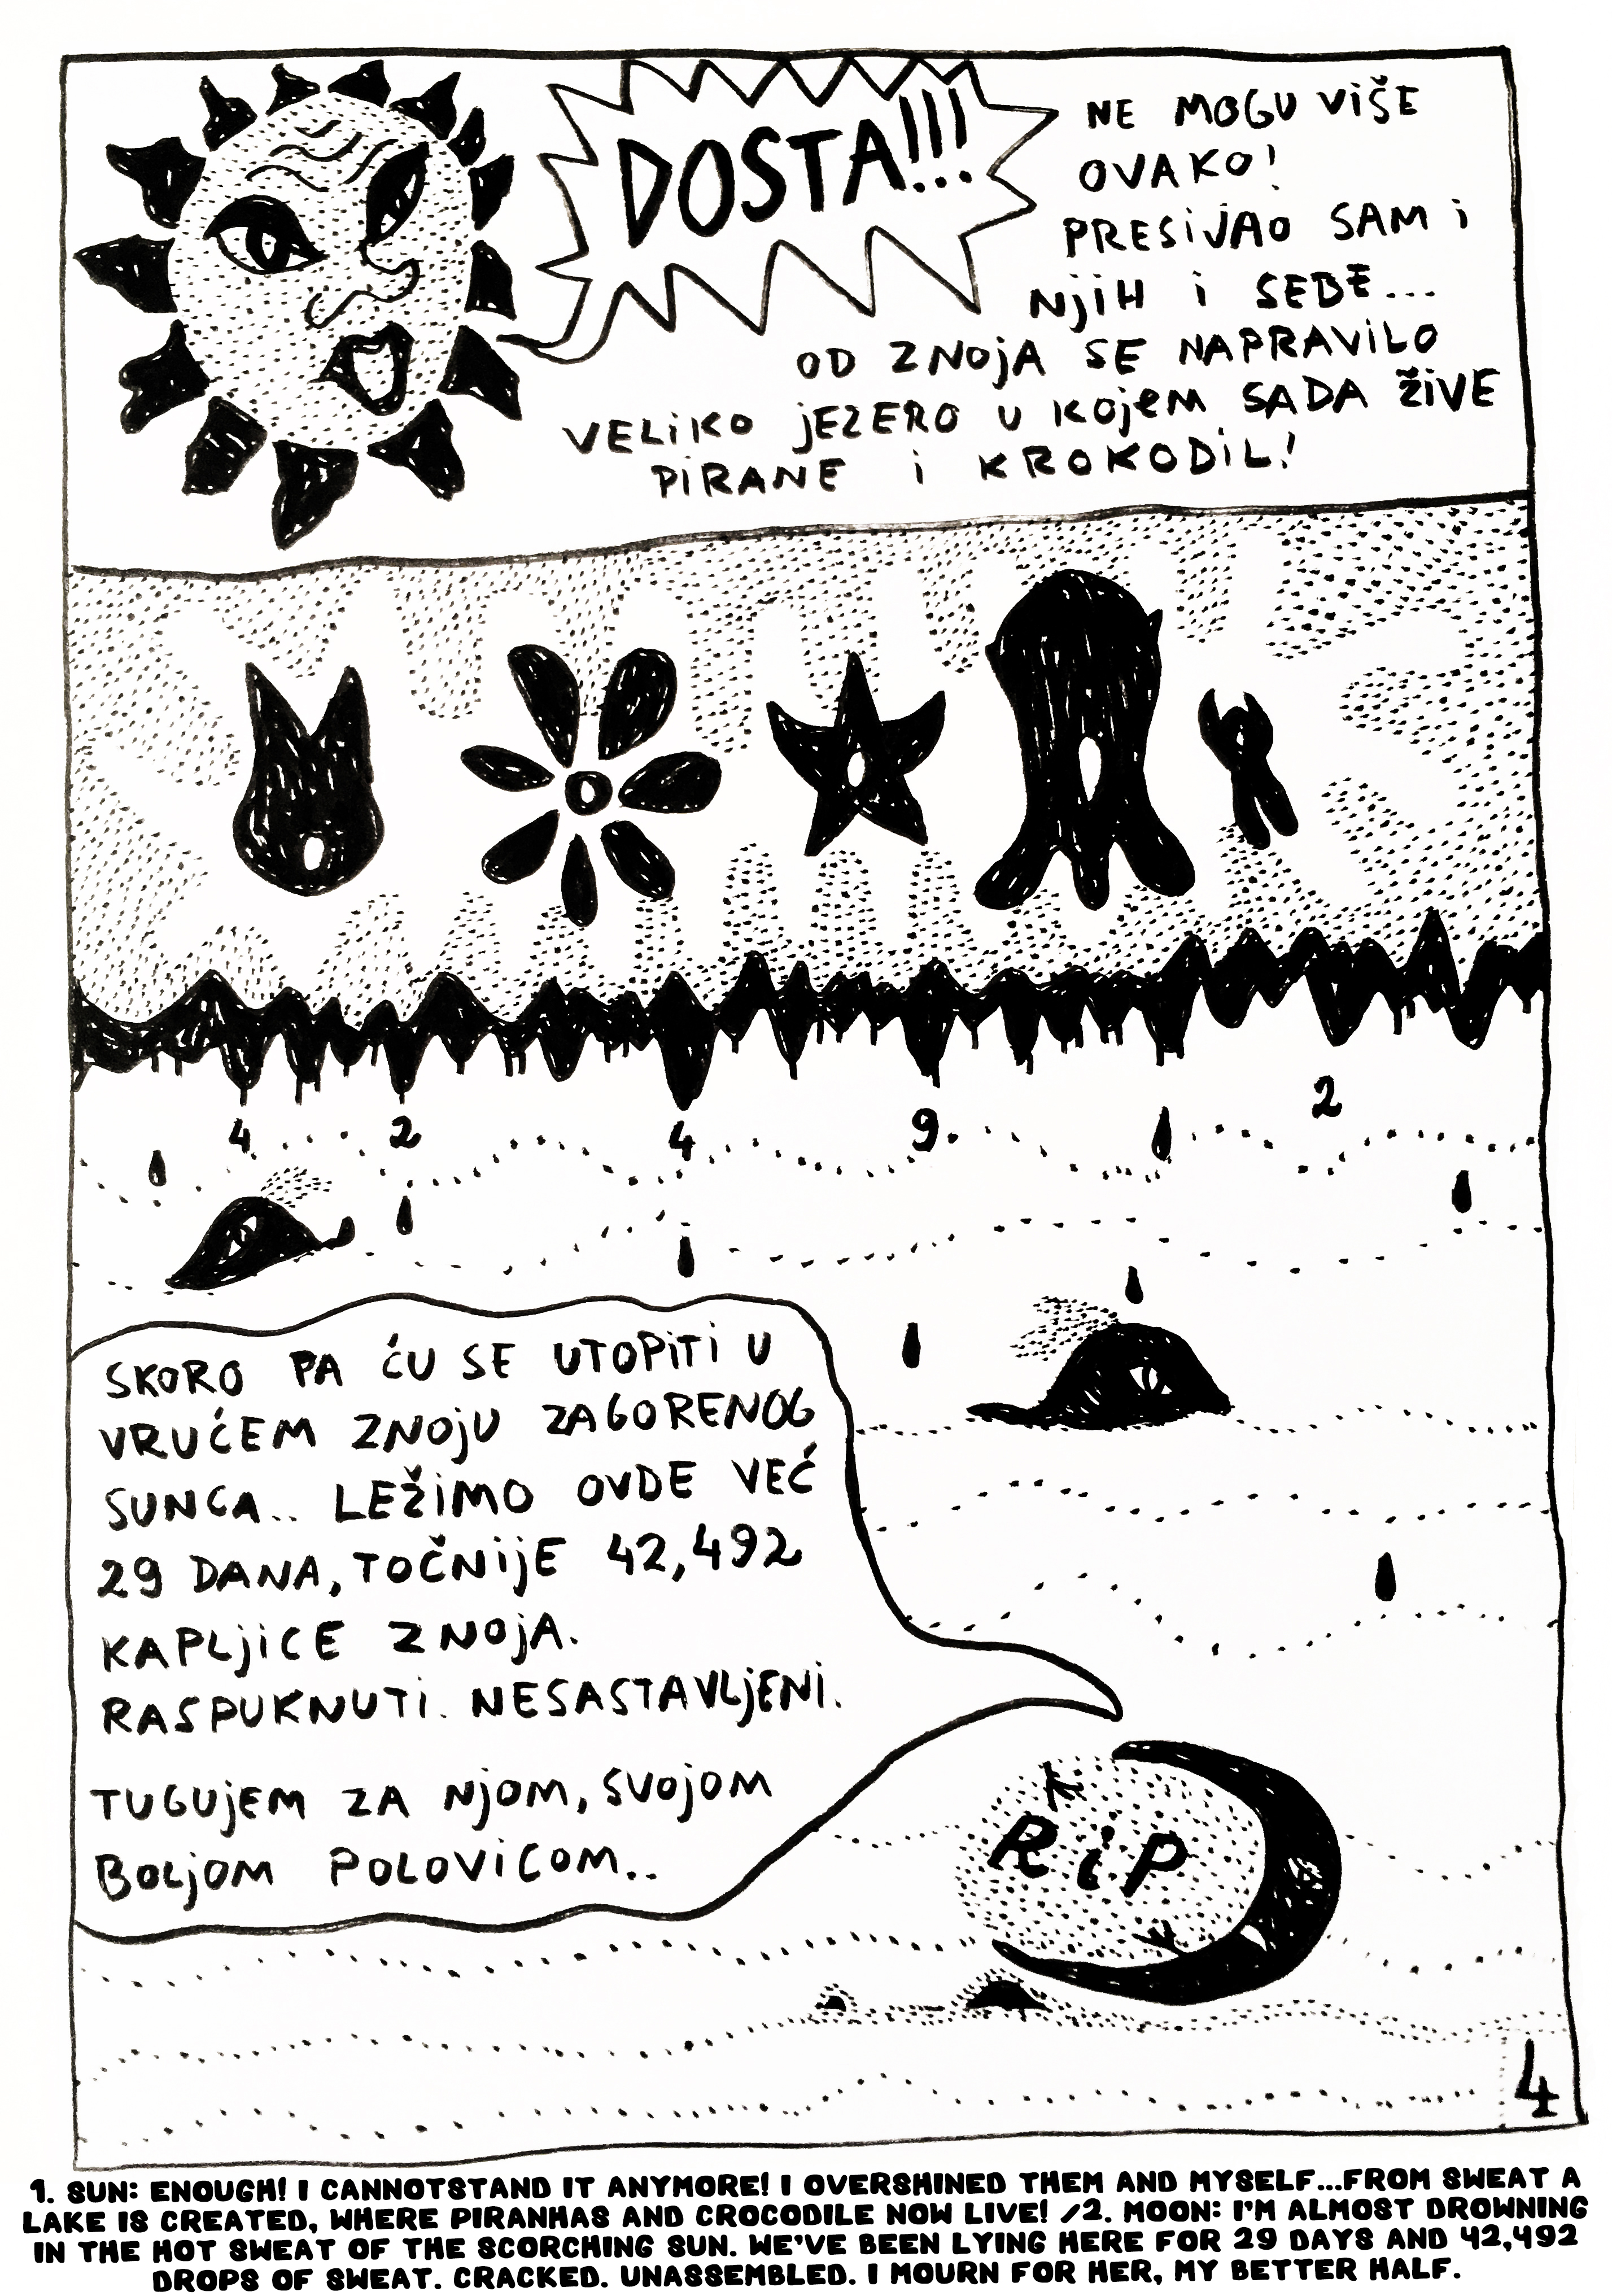 DOSTA!!!
NE MOGU VIŠE
OVAKO!
PRESIJAO SAM I
NJIH I SEBE...
OD ZNOJA SE NAPRAVILO
VELIKO JEZERO U KOJEM SADA ŽIVE
PIRANE I KROKODIL!
4 2 4 9 2
SKORO PA ĆU SE UTOPITI U
VRUĆEM ZNOJU ZAGORENOG
SUNCA.. LEŽIMO OVDE VEĆ
29 DANA, TOČNIJE 42,492
KAPLJICE ZNOJA.
RASPUKNUTI. NESASTAVLJENI.
TUGUJEM ZA NJOM, SVOJOM
BOLJOM POLOVICOM..
RiP
4
1. SUN: ENOUGH! I CANNOTSTAND IT ANYMORE! I OVERSHINED THEM AND MYSELF...FROM SWEAT A
LAKE IS CREATED, WHERE PIRANHAS AND CROCODILE NOW LIVE! /2. MOON: I'M ALMOST DROWNING
IN THE HOT SWEAT OF THE SCORCHING SUN. WE'VE BEEN LYING HERE FOR 29 DAYS AND 42,492
DROPS OF SWEAT. CRACKED. UNASSEMBLED. I MOURN FOR HER, MY BETTER HALF.